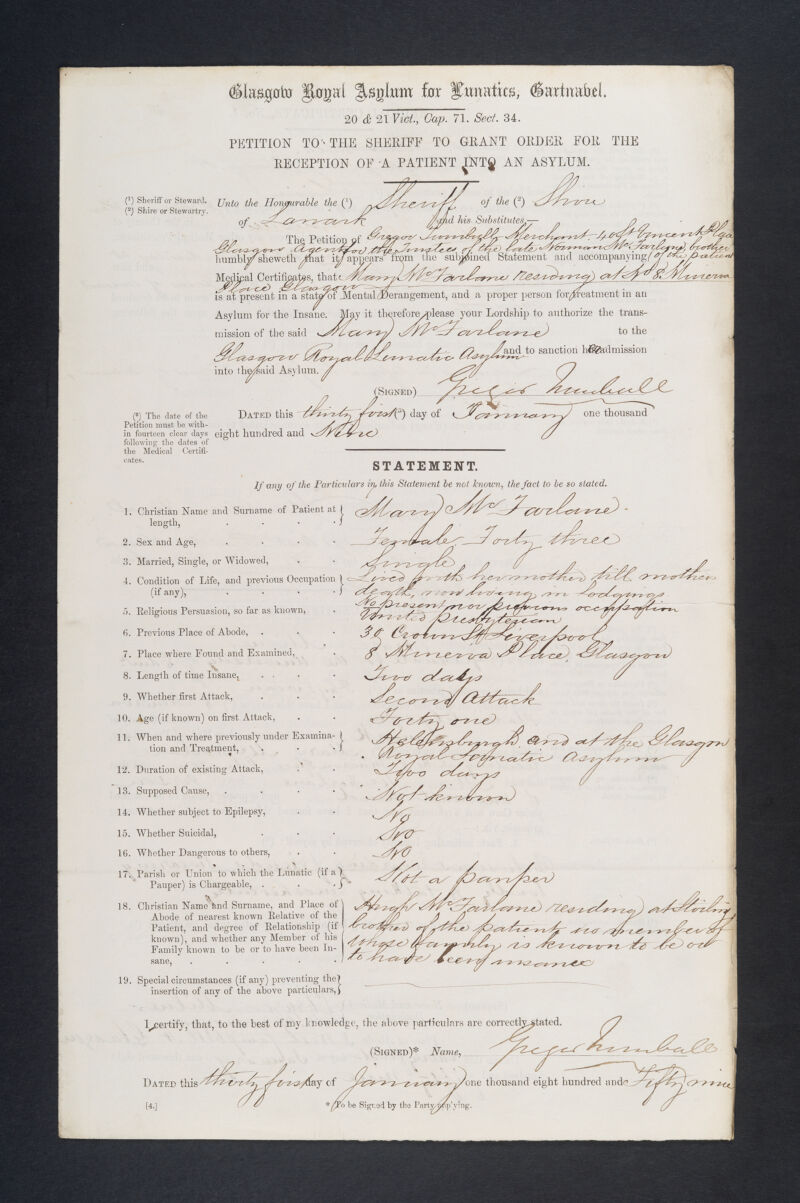 Glasgow Royal Asylum for Lunatics, Gartnabel.
20 & 21 Vict., Cap. 71. Sect. 34.
PETITION TO THE SHERIFF TO GRANT ORDER FOR THE
RECEPTION OF A PATIENT INTO AN ASYLUM.
(1) Sheriff or Steward.
(2) Shire or Stewartry.
Unto the Honourable the (1) Sheriff of the (2) Shire
of Lanark and his Substitutes,—
The Petition of Gregor Turnbull Merchant St Vincent
Glasgow Agent for the Trustees of the late Norman McFarlane, brother
humbly sheweth that it appears from the subjoined Statement and accompanying of the patient
Medical Certificates, that Mary McFarlane residing at No 8 Minerva
Place Glasgow
is at present in a state of Mental Derangement, and a proper person for treatment in an
Asylum for the Insane. May it therefore please your Lordship to authorize the trans-
mission of the said Mary McFarlane to the
Glasgow Royal Lunatic Asylum and to sanction her admission
into the said Asylum.
(SIGNED) Gregor Turnbull
(3) The date of the
Petition must be with-
in fourteen clear days
following the dates of
the Medical Certifi-
cates.
DATED this thirty first (3) day of January one thousand
eight hundred and Nine
STATEMENT.
If any of the Particulars in this Statement be not known, the fact to be so stated.
1. Christian Name and Surname of Patient at length, Mary McFarlane.
2. Sex and Age, Female Forty three
3. Married, Single, or Widowed, Single
4. Condition of Life, and previous Occupation (if any), Lived with her mother till mothers
death, now living in Lodgings
No present nor previous occupation
5. Religious Persuasion, so far as known, United Presbyterian
6. Previous Place of Abode, 30 Crown St Liverpool
7. Place where Found and Examined, 8 Minerva Place, Glasgow
8. Length of time Insane, Two days
9. Whether first Attack, Second Attack
10. Age (if known) on first Attack, Forty one
11. When and where previously under Examina- Helensburgh and at the Glasgow
tion and Treatment, Royal Lunatic Asylum
12. Duration of existing Attack, Two days
13. Supposed Cause, Not known
14. Whether subject to Epilepsy, No
15. Whether Suicidal, No
16. Whether Dangerous to others, No
17. Parish or Union to which the Lunatic (if a
Pauper) is Chargeable, Not a pauper
18. Christian Name and Surname, and Place of
Abode of nearest known Relative of the
Patient, and degree of Relationship (if
known), and whether any Member of his
Family known to be or to have been In-
sane,
Hugh McFarlane residing at Stirling
brother of the patient no member of
whose family is known to be or
to have been insane
19. Special circumstances (if any) preventing the
insertion of any of the above particulars,
I certify, that, to the best of my knowledge, the above particulars are correctly stated.
(SIGNED)* Name, Gregor Turnbull
DATED this thirty first day of January one thousand eight hundred and Fifty nine
[4.]
* To be Signed by the Party applying.